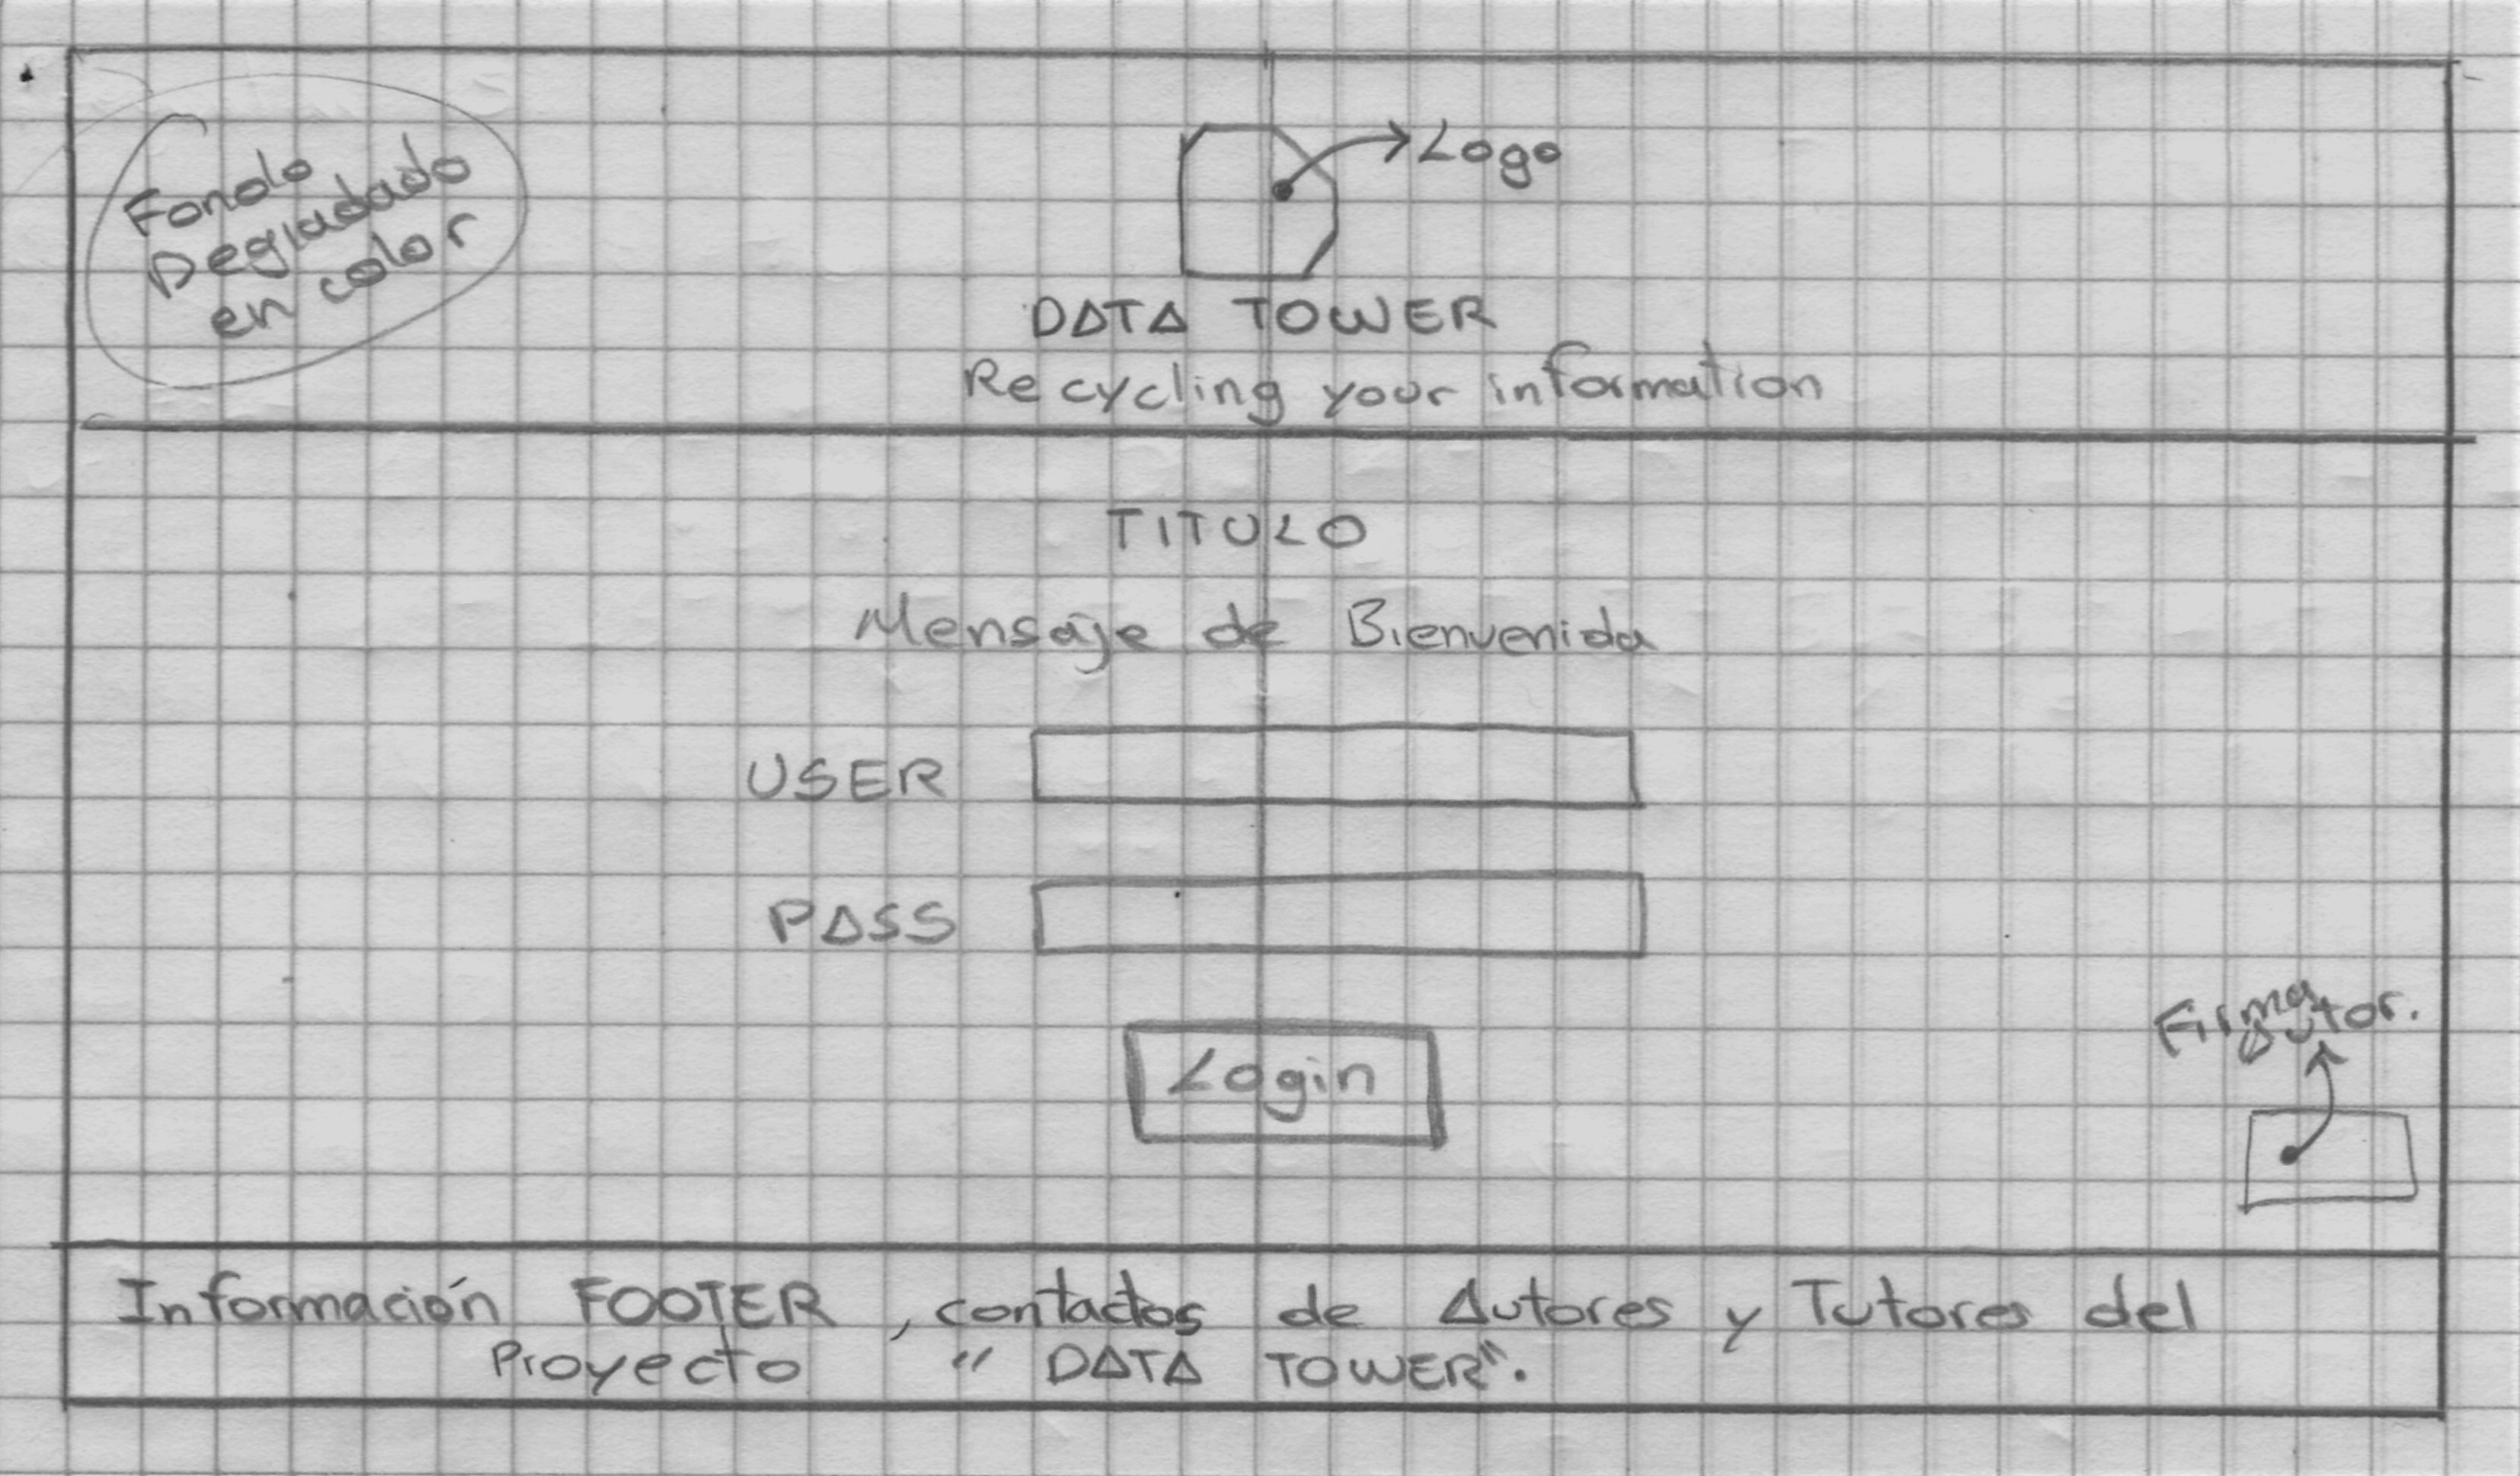 Fondo
Degradado
en color
Logo
DATA TOWER
Recycling your information
TITULO
Mensaje de Bienvenida
USER
PASS
Login
Firma
Información FOOTER, contactos de Autores y Tutores del
Proyecto "DATA TOWER".